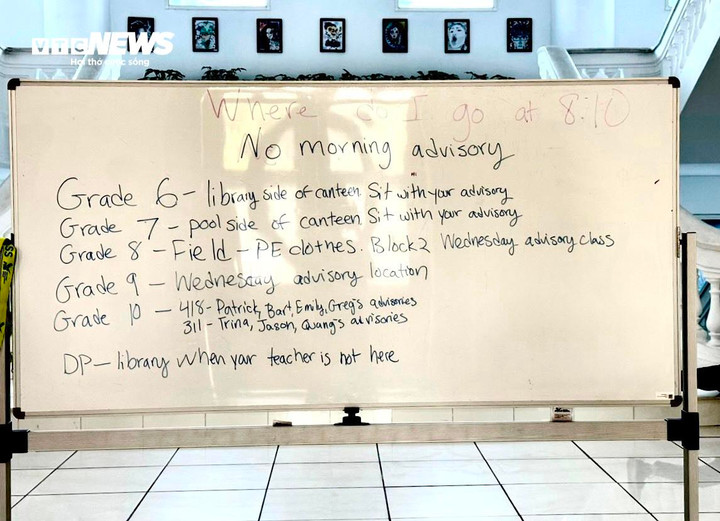 VTC NEWS
Hơi thở cuộc sống
Where do I go at 8:10
No morning advisory
Grade 6 - library side of canteen Sit with your advisory
Grade 7 - pool side of canteen Sit with your advisory
Grade 8 - Field - PE clothes. Block 2 Wednesday advisory class
Grade 9 - Wednesday advisory location
Grade 10 - 418 - Patrick, Bart, Emily, Greg's advisories
311 - Trina, Jason, Quang's advisories
DP - library when your teacher is not here